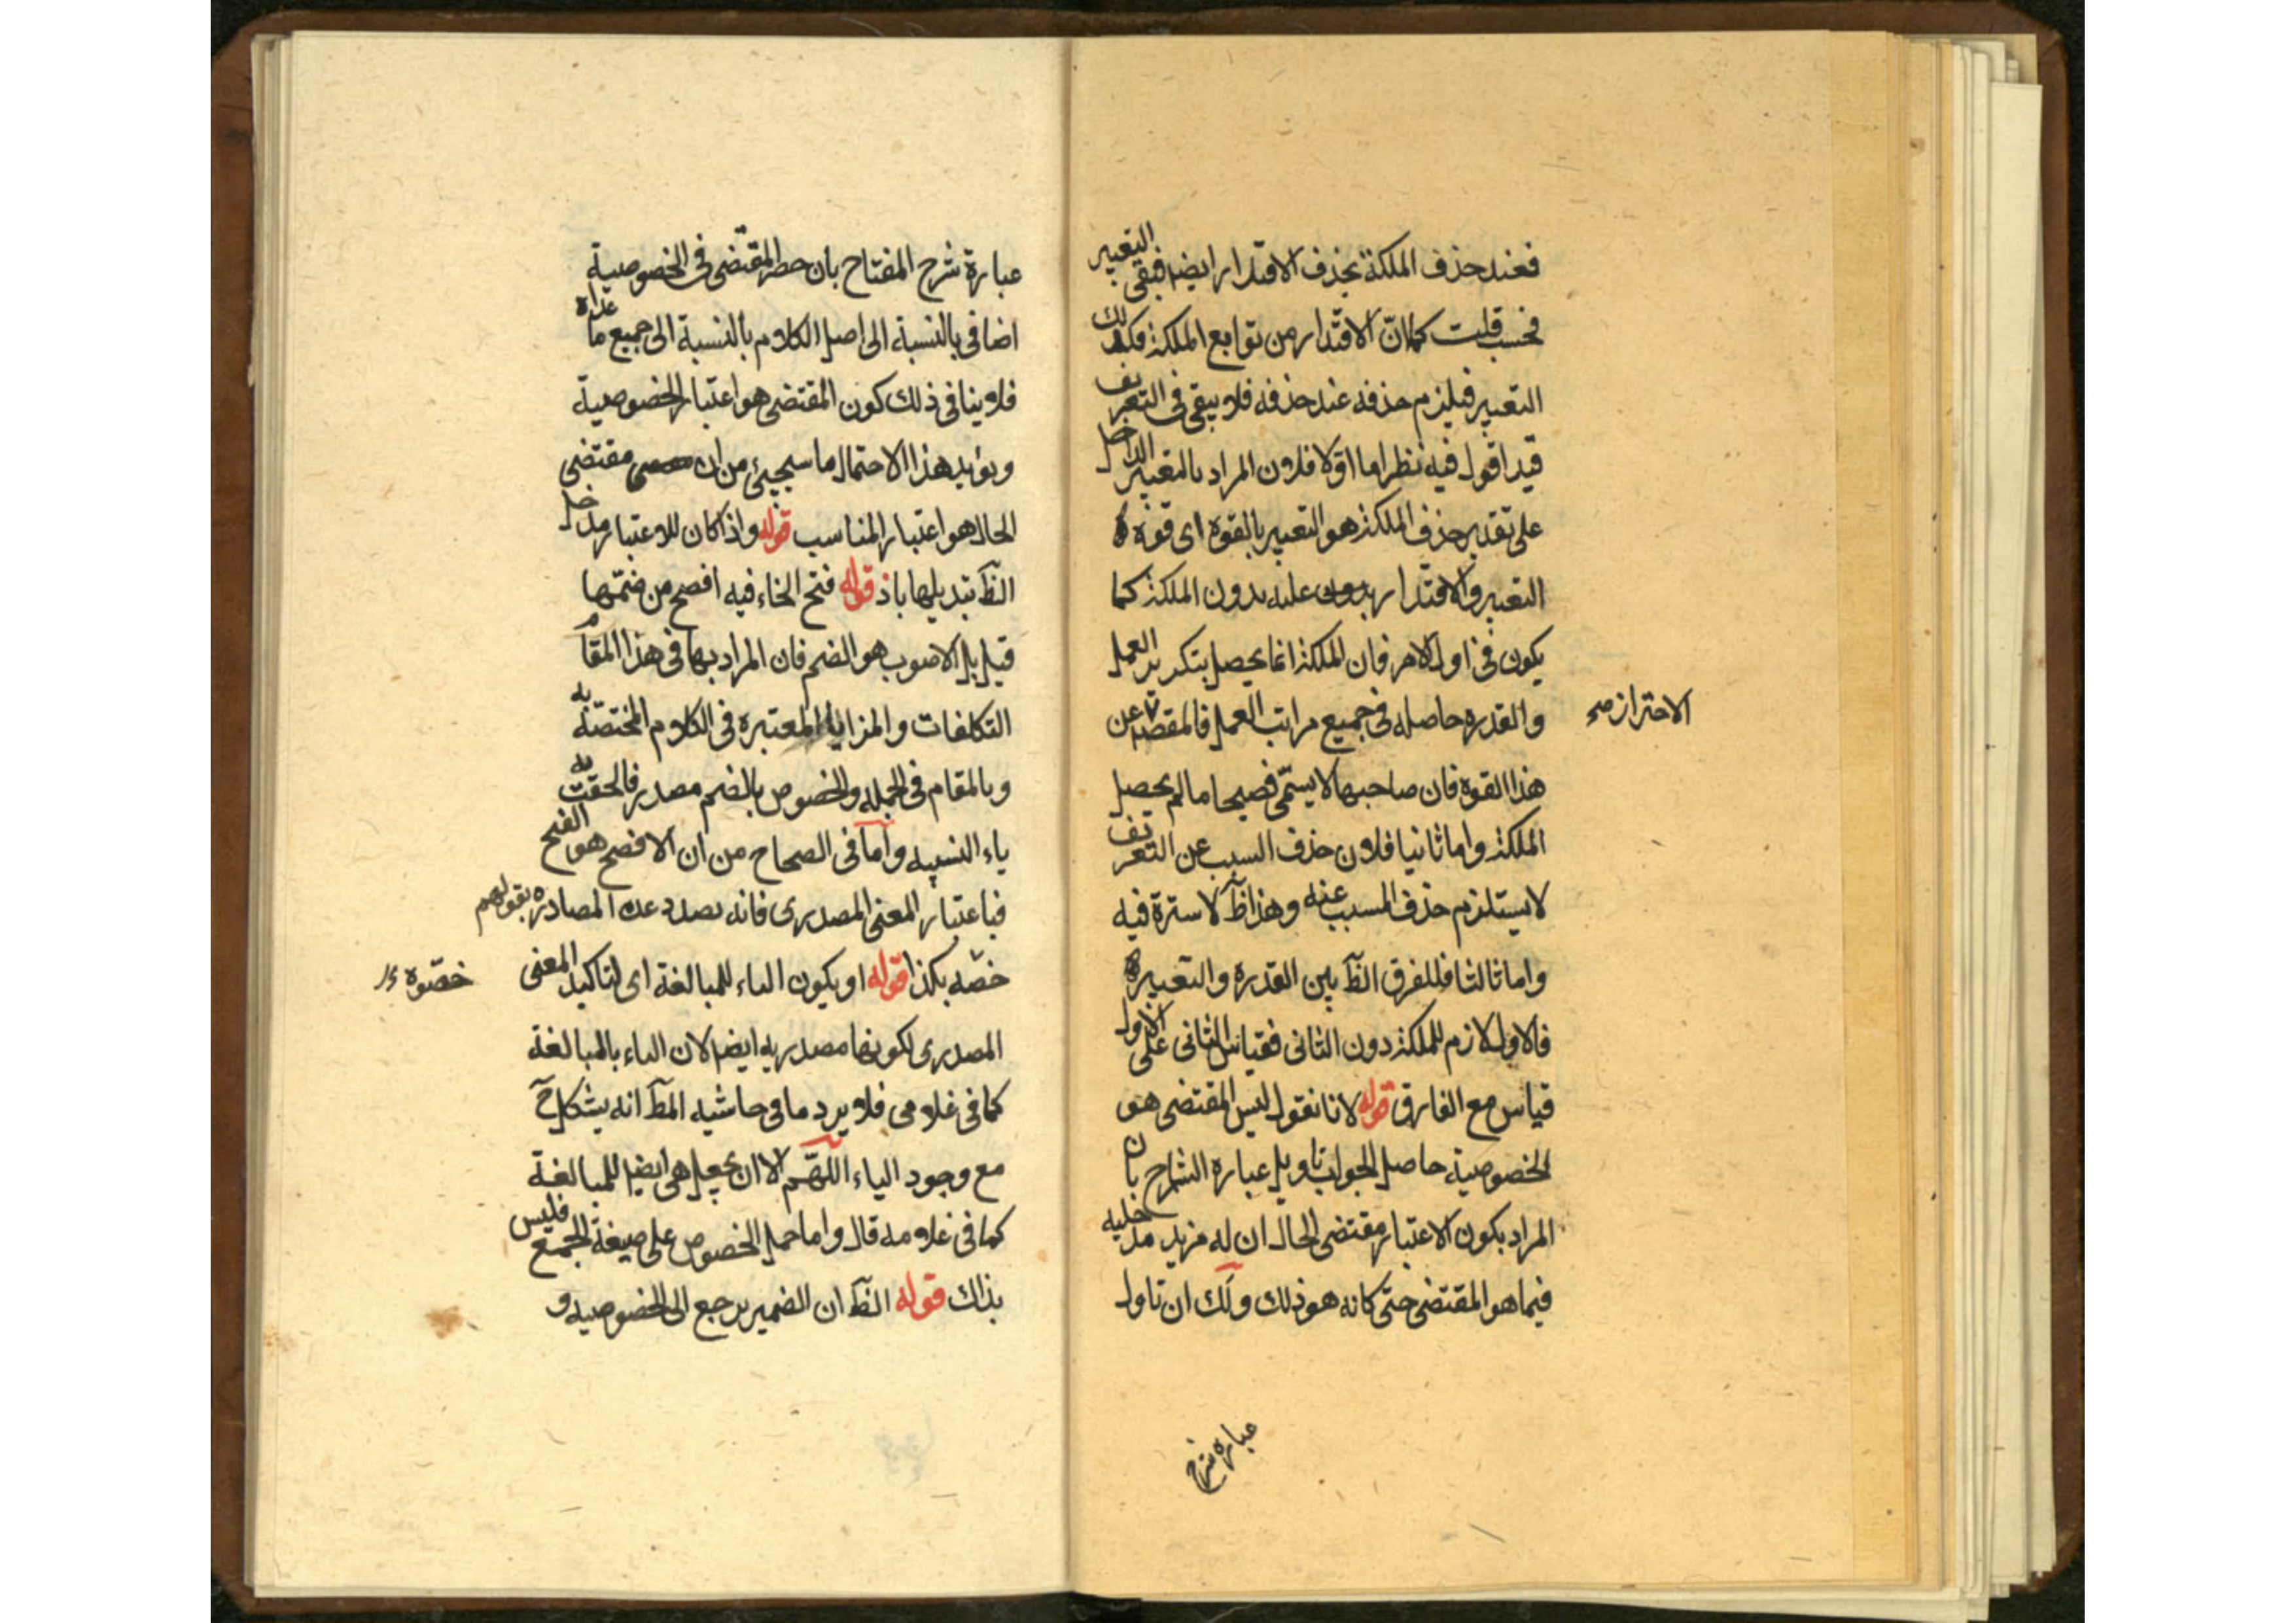 فعند حذف الملكة يحذف الاقتدار ايضا فبقى التعبير
فحسب قلت كما انّ الاقتدار من توابع الملكة فكذلك
التعبير فيلزم حذفه عند حذفه فلا يبقى فى التعريف
قيد اقول فيه نظر اما اوّلا فلان المراد بالتعبير الداخل
على تقدير حذف الملكة هو التعبير بالقوة اى قوة
التعبير والاقتدار عليه بدون الملكة كما
يكون فى اول الامر فان الملكة انما يحصل بتكرير العمل
والقدره حاصله فى جميع مراتب العمل فالمقصد عن
الاحتراز صح
هذا القوة فان صاحبها لا يسمّى فصيحا ما لم يحصل
الملكة واما ثانيا فلان حذف السبب عن التعريف
لا يستلزم حذف المسبب عنه وهذا ظ لا سترة فيه
واما ثالثا فللفرق الظ بين القدره والتعبير
فالاول لازم للملكة دون الثانى فقياس الثانى على الاول
قياس مع الفارق قوله لانا نقول ليس المقتضى هو
الخصوصية حاصل الجواب تاويل عبارة الشارح بان
المراد بكون الاعتبار مقتضى الحال ان له مزيد مدخليه
فيما هو المقتضى حتى كانه هو ذلك ولك ان تاول
عباره شرح
عبارة شرح المفتاح بان حصر المقتضى فى الخصوصية
اضافى بالنسبة الى اصل الكلام لا بالنسبة الى جميع ما عداه
فلا ينافى ذلك كون المقتضى هو اعتبار الخصوصية
ويؤيد هذا الاحتمال ما سيجيئ من ان مقتضى
الحال هو اعتبار المناسب قوله واذا كان للاعتبار مدخل
الظ تبديلها باذ قوله فتح الخاء فيه افصح من ضمّها
قيل بل الاصوب هو الضم فان المراد بها فى هذا المقام
التكلفات والمزايا المعتبره فى الكلام المختصّة به
وبالمقام فى الجمله والخصوص بالضم مصدر فالحقت به
ياء النسبيه واما فى الصحاح من ان الافصح هو الفتح
فباعتبار المعنى المصدرى فانه بصدد عد المصادر بقولهم
خصّه بكذا قوله او يكون الياء للمبالغة اى لتاكيد المعنى
خصّوه
المصدرى لكونها مصدريه ايضا لان الياء بالمبالغة
كما فى غلامى فلا يرد ما فى حاشيه المط انه يشكل ح
مع وجود الياء اللهّم الا ان يجعل هى ايضا للمبالغة
كما فى علامه قال واما حمل الخصوص على صيغة الجمع فليس
بذاك قوله الظ ان الضمير يرجع الى الخصوصيه و